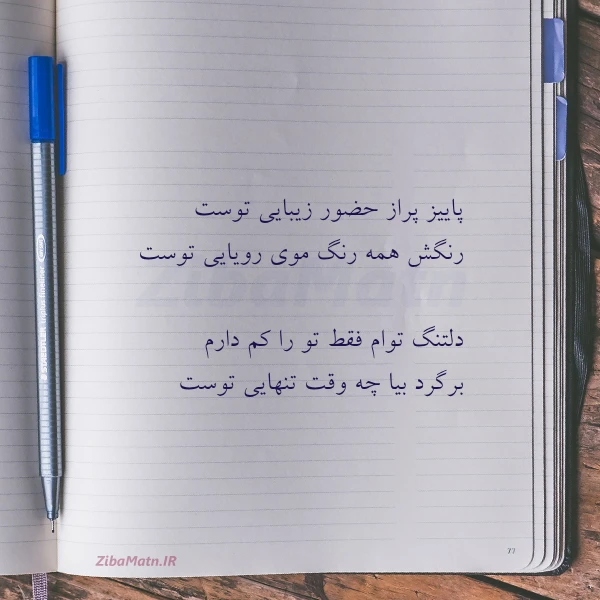 پاییز پراز حضور زیبایی توست
رنگش همه رنگ موی رویایی توست
دلتنگ توام فقط تو را کم دارم
برگرد بیا چه وقت تنهایی توست
ZibaMatn.IR
ZibaMatn
77